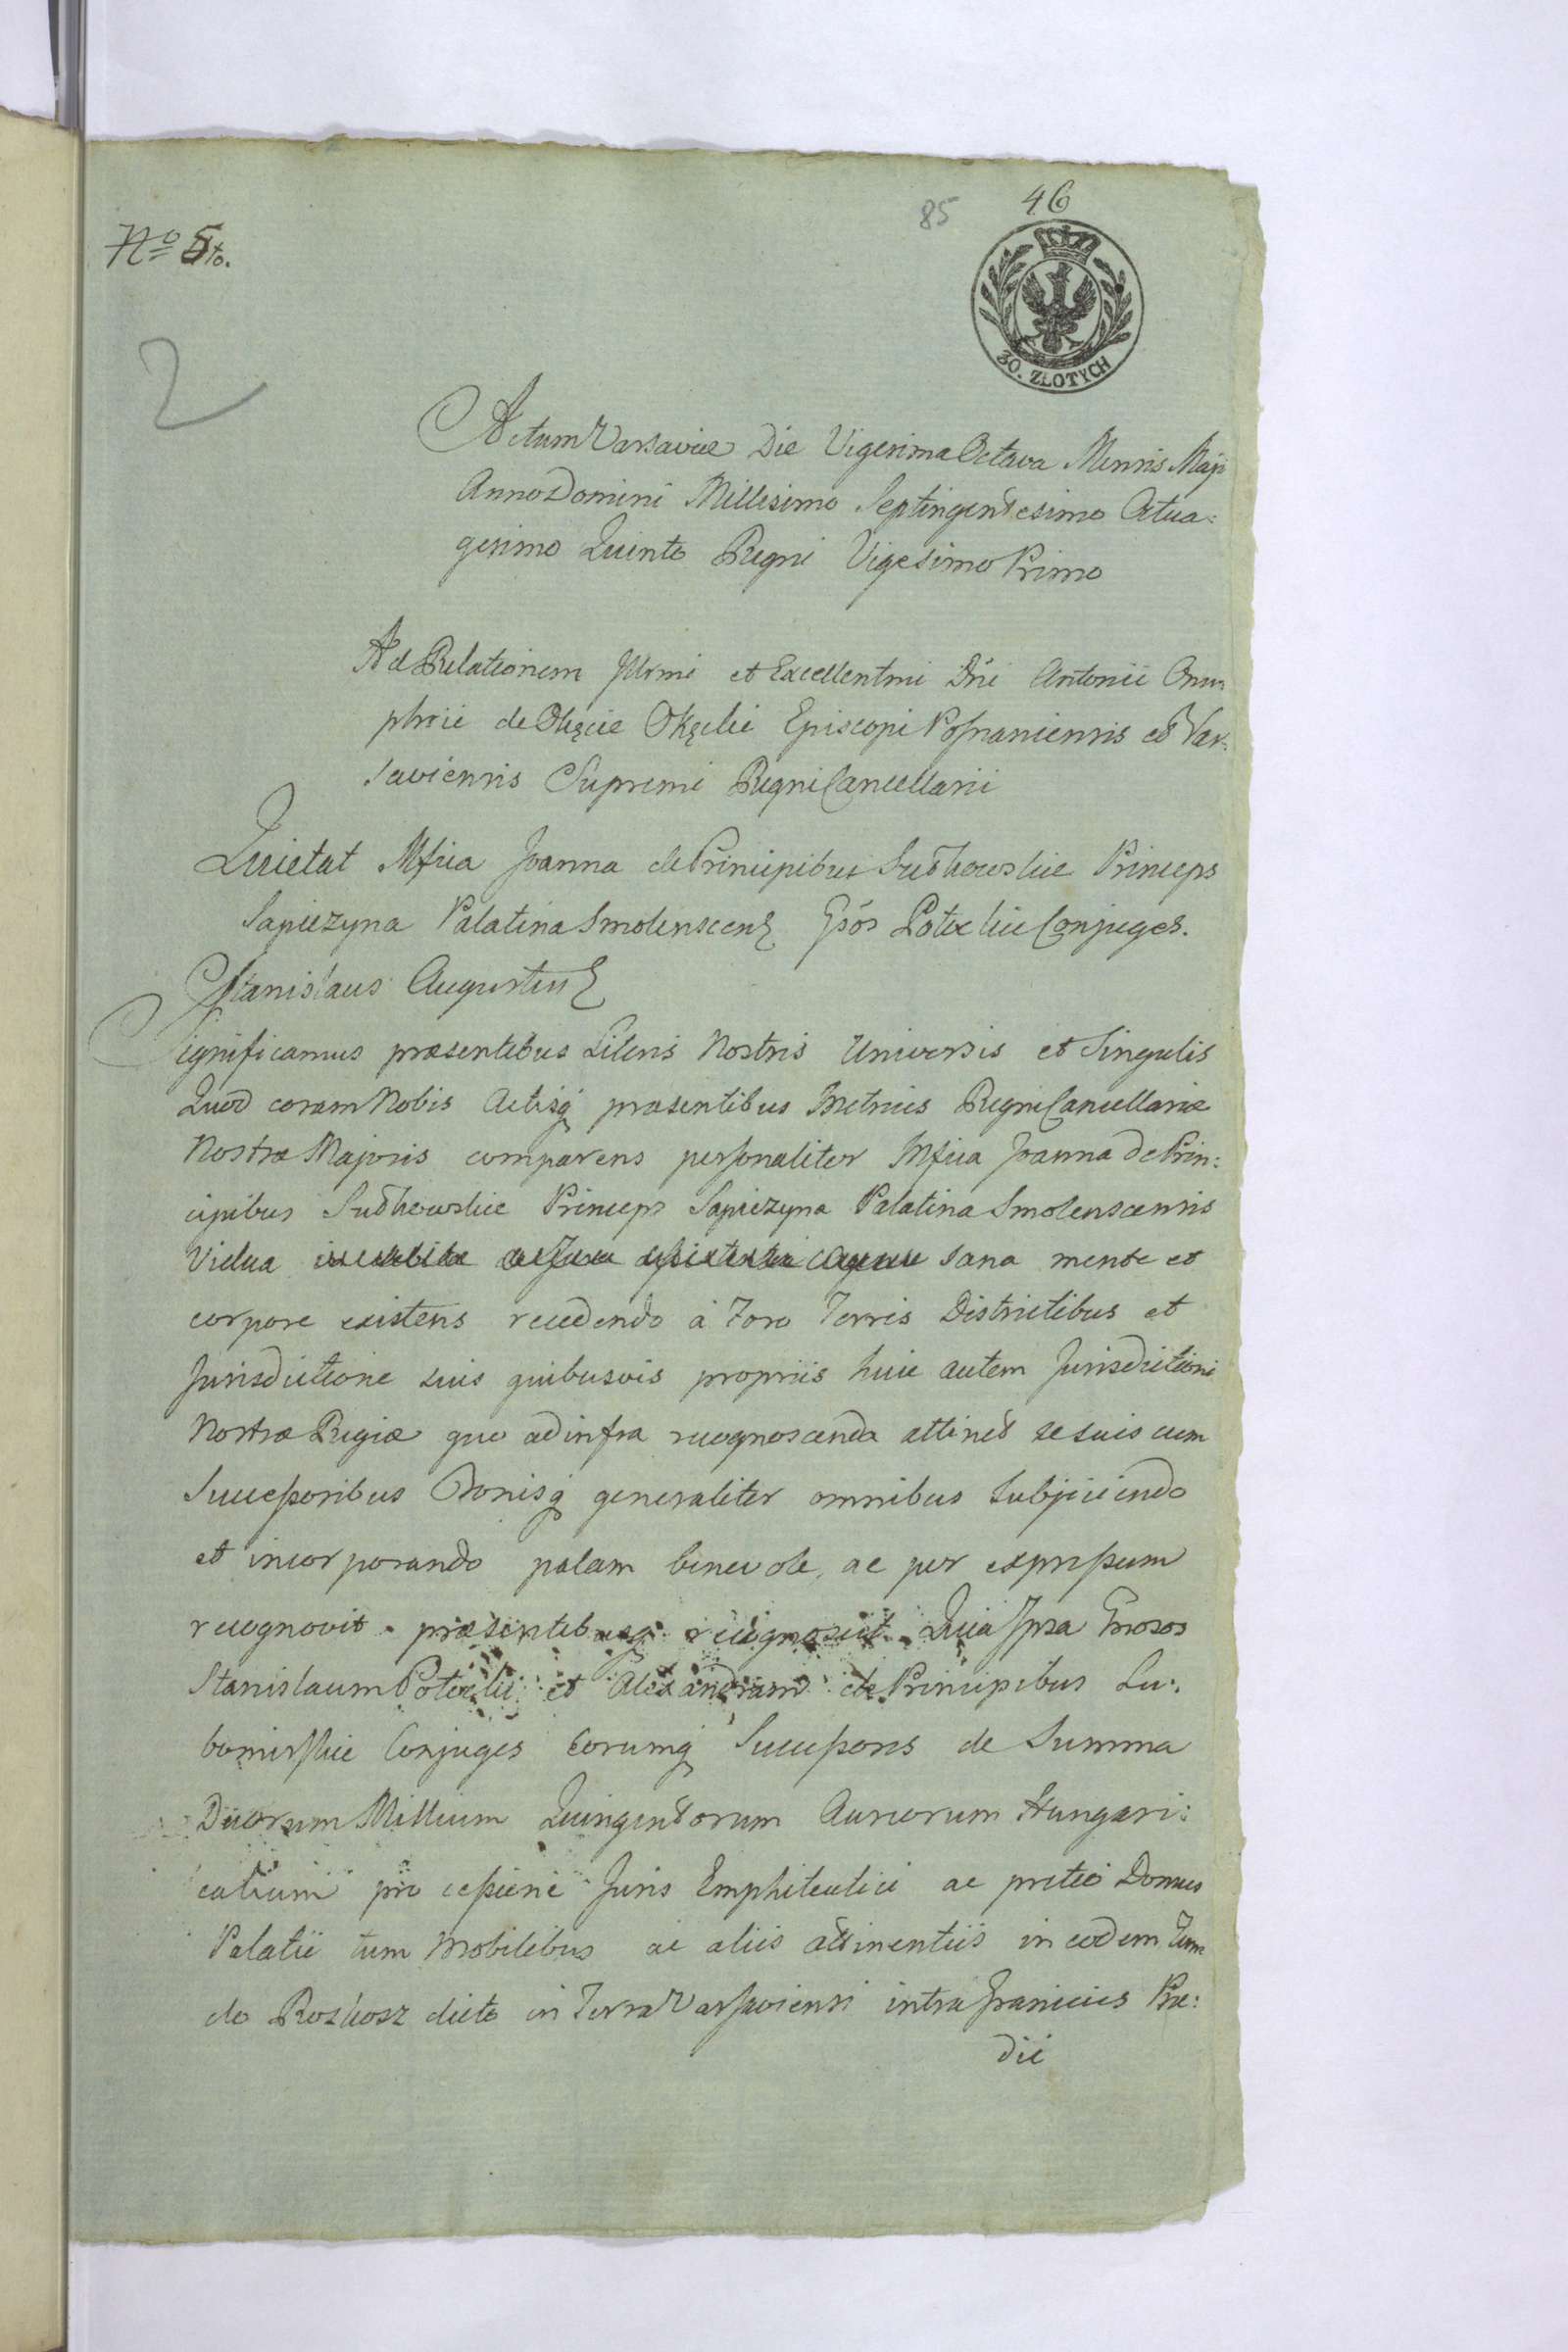 85 46
No 5to.
30. ZŁOTYCH
2
Actum Varsaviæ Die Vigesima Octava Mensis Maji
Anno Domini Millesimo Septingentesimo Octua:
gesimo Quinto Regni Vigesimo Primo
Ad Relationem Illrmi et Excellentmi Dni Antonii Onu
phrii de Okęcie Okęcki Episcopi Posnaniensis et Var:
saviensis Supremi Regni Cancellarii
Quietat Mfica Joanna de Principibus Sułkowskie Princeps
Sapiezyna Palatina Smolenscen Gsos Potockie Conjuges.
Stanislaus Augustus
Significamus præsentibus Literis Nostris Universis et Singulis
Quod coram Nobis Actisq præsentibus Metrices Regni Cancellariæ
Nostræ Majoris comparens personaliter Mfica Joanna de Prin:
cipibus Sułkowskie Princeps Sapiezyna Palatina Smolenscensis
Vidua sana mente et
corpore existens recedendo à Foro Terris Districtibus et
Jurisdictione suis quibusvis propriis huic autem Jurisdictioni
Nostræ Regiæ quo ad infra recognoscenda attinet se suis cum
Successoribus Bonisq generaliter omnibus subjiciendo
et incorporando palam benevole, ac per expressum
recognovit præsentibusq recognoscit Quia Ipsa Gnosos
Stanislaum Potocki et Alexandram de Principibus Lu:
bomirskie Conjuges Eorumq Successores de Summa
Duorum Millium Quingentorum Aureorum Hungari:
calium pro cessione Juris Emphiteutici ac pretio Domus
Palatii tum Mobilibus ac aliis attinentiis in eodem Fun
do Roskosz dicto in Terra Varsaviensi intra Granicies Præ:
dii